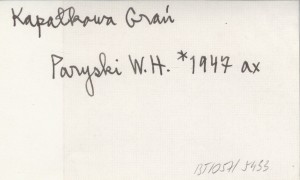 Kapałkowa Grań
Paryski W.H. *1947 ax
BT1057/5433